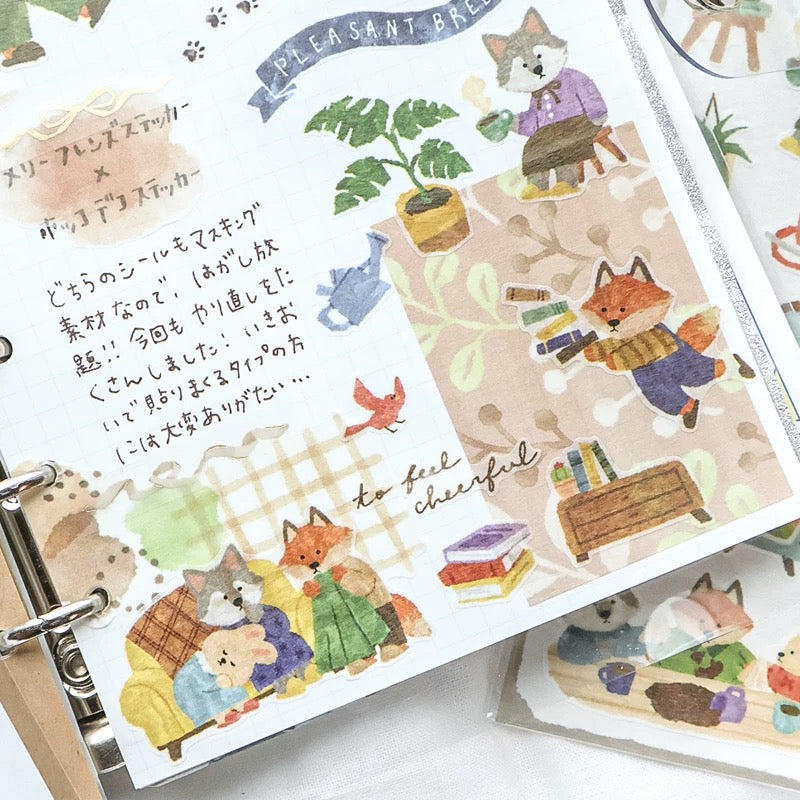 PLEASANT BREE
メリーフレンズステッカー
×
ポッコデコステッカー
どちらのシールもマスキング
素材なので、はがし放
題!! 今回も やり直しをた
くさんしました! いきお
いで貼りまくるタイプの方
には大変ありがたい...
to feel
cheerful